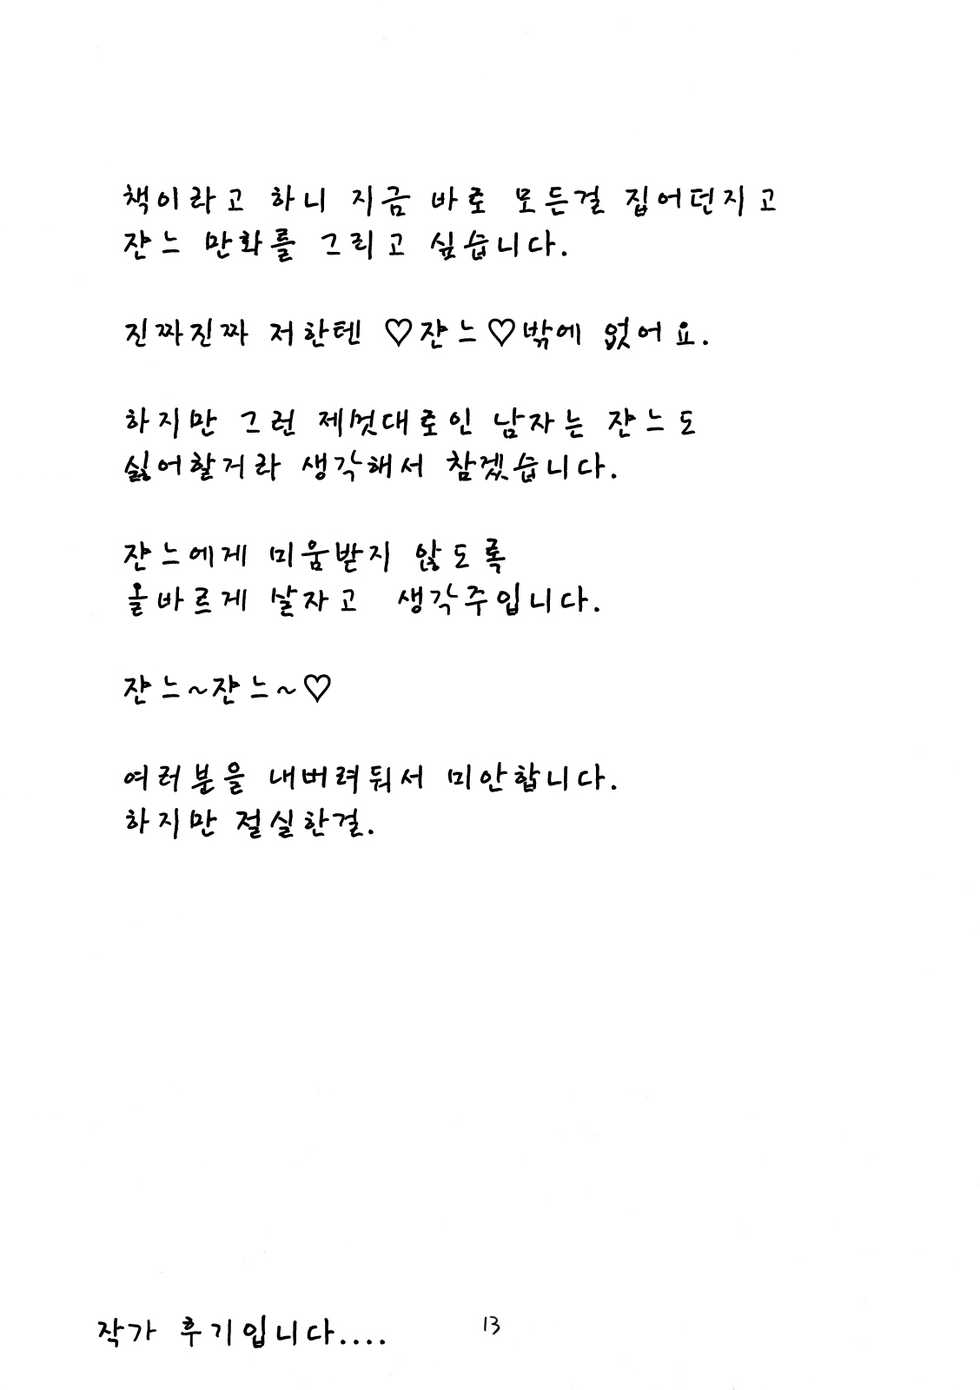 책이라고 하니 지금 바로 모든걸 집어던지고
쟌느 만화를 그리고 싶습니다.
진짜진짜 저한텐 ♡쟌느♡밖에 없어요.
하지만 그런 제멋대로인 남자는 쟌느도
싫어할거라 생각해서 참겠습니다.
쟌느에게 미움받지 않도록
올바르게 살자고 생각주입니다.
쟌느~쟌느~♡
여러분을 내버려둬서 미안합니다.
하지만 절실한걸.
작가 후기입니다....
13